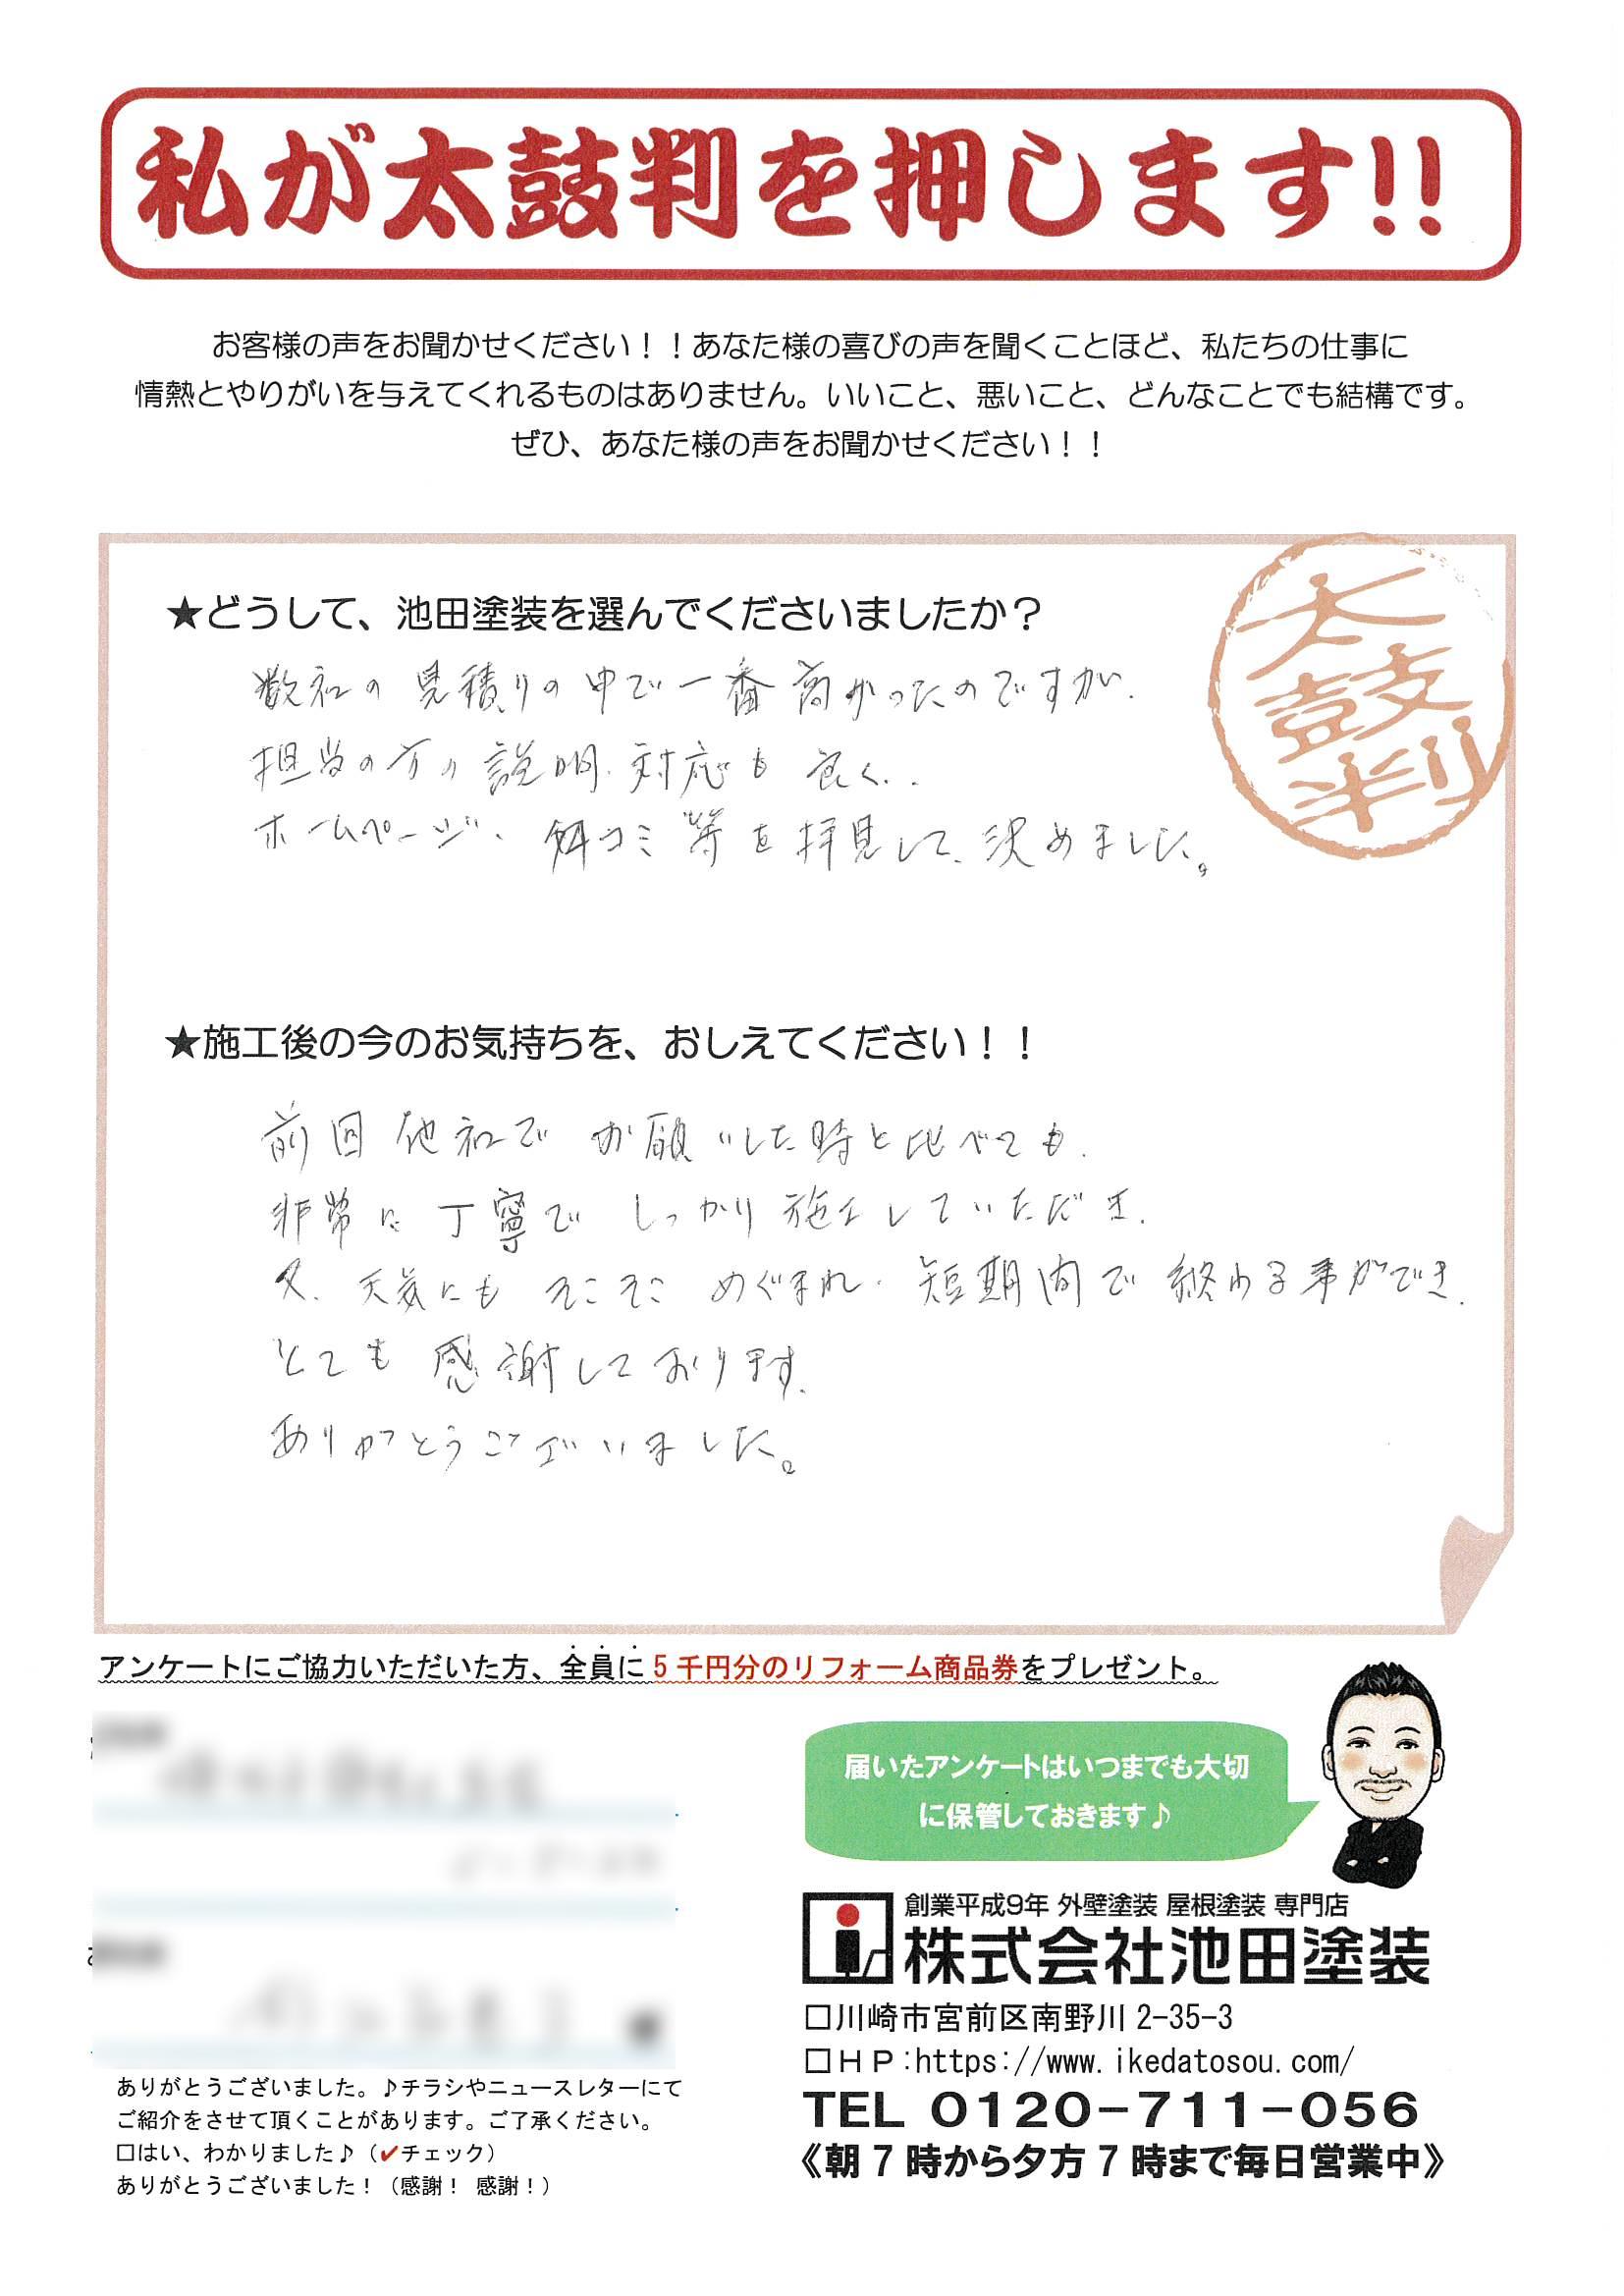 私が太鼓判を押します!!
お客様の声をお聞かせください！！あなた様の喜びの声を聞くことほど、私たちの仕事に
情熱とやりがいを与えてくれるものはありません。いいこと、悪いこと、どんなことでも結構です。
ぜひ、あなた様の声をお聞かせください！！
太鼓判
★どうして、池田塗装を選んでくださいましたか？
数社の見積りの中で一番高かったのですが、
担当の方の説明、対応も良く、
ホームページ、口コミ等を拝見して、決めました。
★施工後の今のお気持ちを、おしえてください！！
前回他社でお願いした時と比べても、
非常に丁寧でしっかり施工していただき、
又、天気にもそこそこめぐまれ、短期間で終わる事ができ、
とても感謝しております。
ありがとうございました。
アンケートにご協力いただいた方、全員に5千円分のリフォーム商品券をプレゼント。
届いたアンケートはいつまでも大切
に保管しておきます♪
創業平成9年 外壁塗装 屋根塗装 専門店
株式会社池田塗装
□川崎市宮前区南野川2-35-3
□ＨＰ:https://www.ikedatosou.com/
TEL 0120-711-056
《朝7時から夕方7時まで毎日営業中》
ありがとうございました。♪チラシやニュースレターにて
ご紹介をさせて頂くことがあります。ご了承ください。
□はい、わかりました♪（✔チェック）
ありがとうございました！（感謝！ 感謝！）